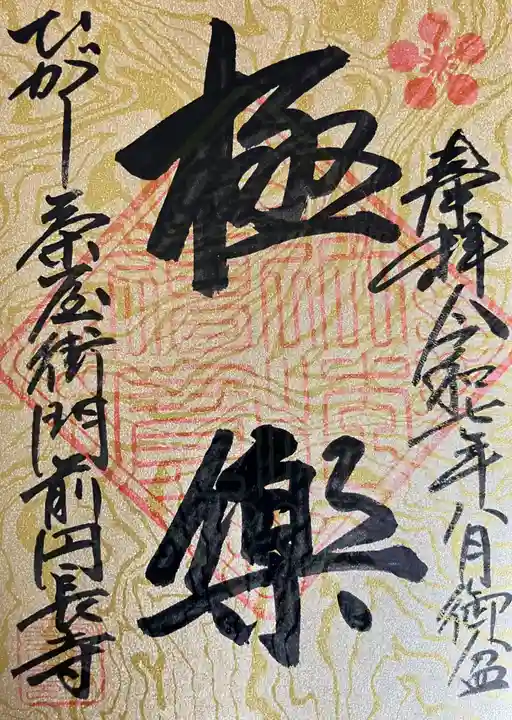 奉拝 令和七年八月御盆
極楽
ひがし茶屋街門前円長寺